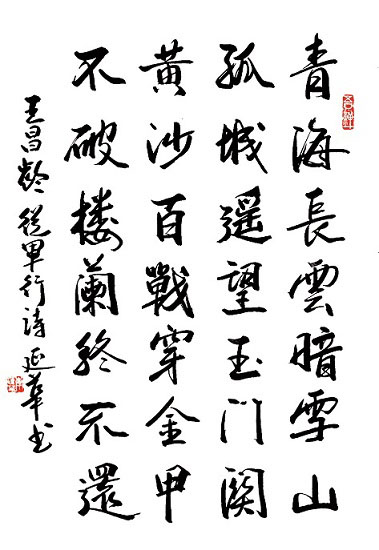 青海長雲暗雪山
孤城遥望玉门関
黄沙百戰穿金甲
不破楼蘭終不還
王昌齡從軍行詩延華书